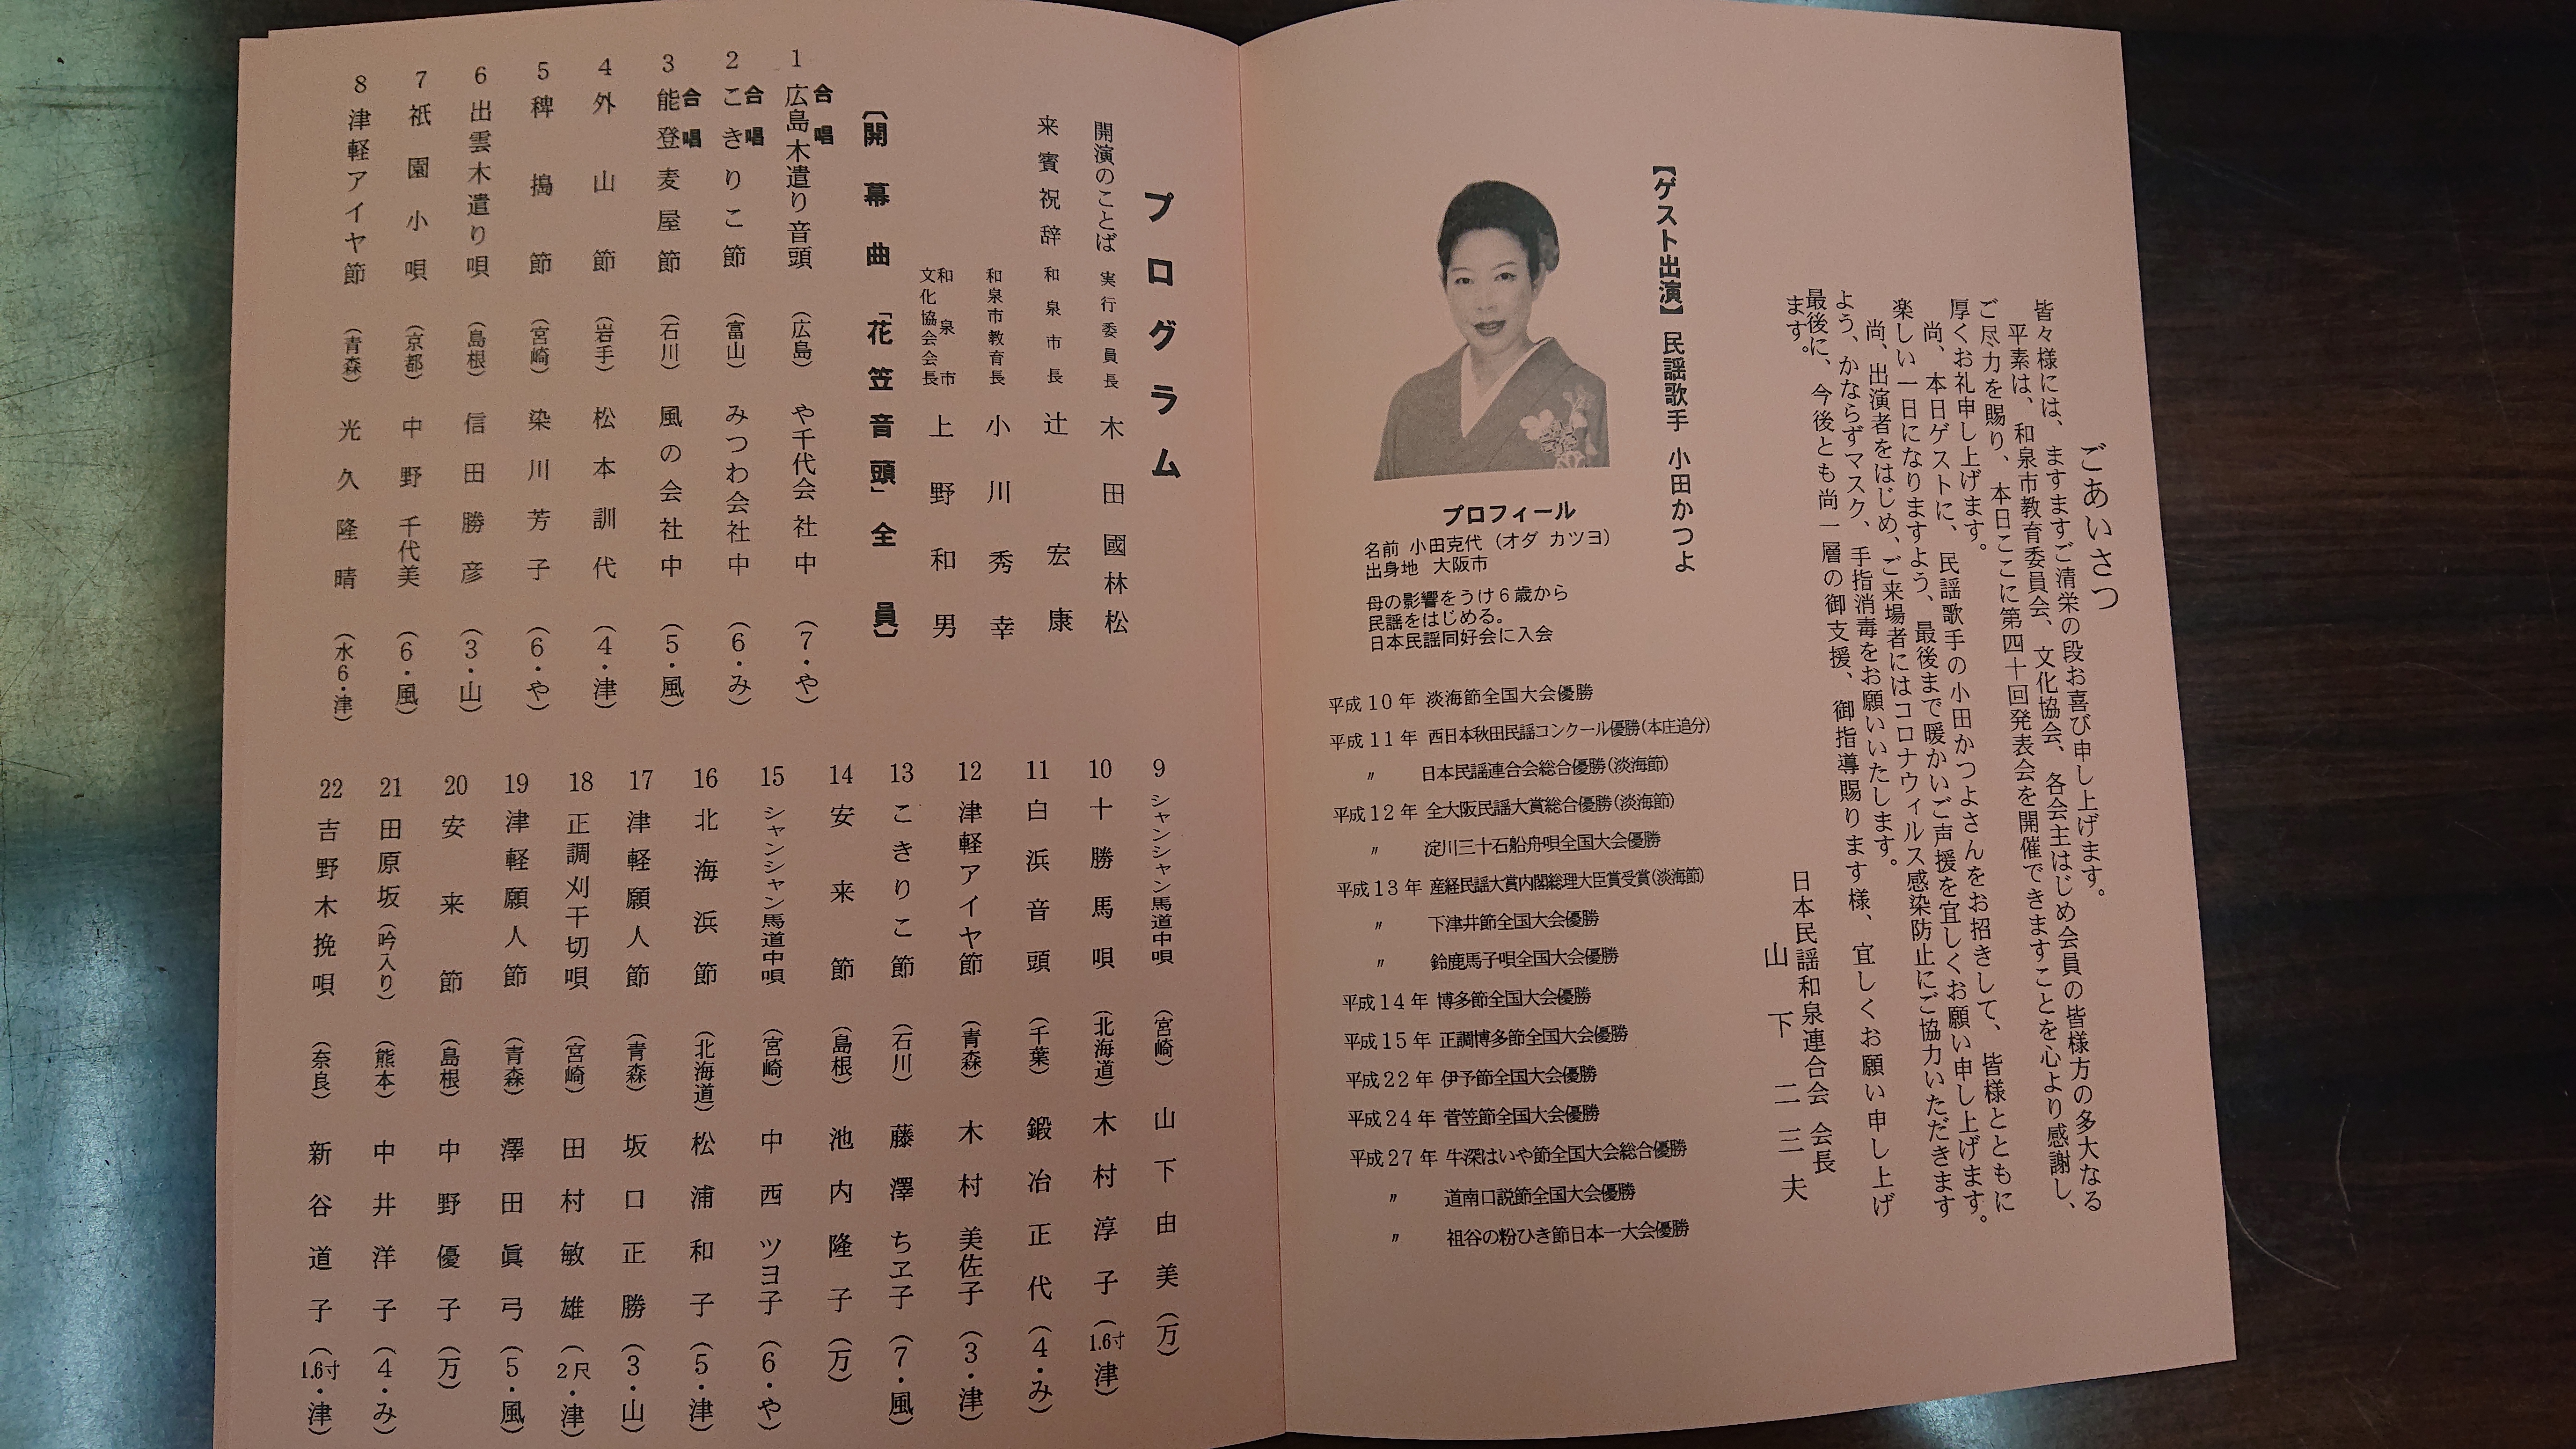 ごあいさつ
皆々様には、ますますご清栄の段お喜び申し上げます。
平素は、和泉市教育委員会、文化協会、各会主はじめ会員の皆様方の多大なる
ご尽力を賜り、本日ここに第四十回発表会を開催できますことを心より感謝し、
厚くお礼申し上げます。
尚、本日ゲストに、民謡歌手の小田かつよさんをお招きして、皆様とともに
楽しい一日になりますよう、最後まで暖かいご声援を宜しくお願い申し上げます。
尚、出演者をはじめ、ご来場者にはコロナウィルス感染防止にご協力いただきます
よう、かならずマスク、手指消毒をお願いいたします。
最後に、今後とも尚一層の御支援、御指導賜ります様、宜しくお願い申し上げ
ます。
日本民謡和泉連合会 会長
山下二三夫
【ゲスト出演】 民謡歌手 小田かつよ
プロフィール
名前 小田克代(オダ カツヨ)
出身地 大阪市
母の影響をうけ6歳から
民謡をはじめる。
日本民謡同好会に入会
平成10年 淡海節全国大会優勝
平成11年 西日本秋田民謡コンクール優勝(本庄追分)
〃 日本民謡連合会総合優勝(淡海節)
平成12年 全大阪民謡大賞総合優勝(淡海節)
〃 淀川三十石船舟唄全国大会優勝
平成13年 産経民謡大賞内閣総理大臣賞受賞(淡海節)
〃 下津井節全国大会優勝
〃 鈴鹿馬子唄全国大会優勝
平成14年 博多節全国大会優勝
平成15年 正調博多節全国大会優勝
平成22年 伊予節全国大会優勝
平成24年 菅笠節全国大会優勝
平成27年 牛深はいや節全国大会総合優勝
〃 道南口説節全国大会優勝
〃 祖谷の粉ひき節日本一大会優勝
プログラム
開演のことば 実行委員長 木田國林松
来賓祝辞 和泉市長 辻宏康
和泉市教育長 小川秀幸
和泉市文化協会会長 上野和男
〔開幕曲「花笠音頭」全員〕
1 合唱 広島木遣り音頭 (広島) や千代会社中 (7・や)
2 合唱 こきりこ節 (富山) みつわ会社中 (6・み)
3 合唱 能登麦屋節 (石川) 風の会社中 (5・風)
4 外山節 (岩手) 松本訓代 (4・津)
5 稗搗節 (宮崎) 染川芳子 (6・や)
6 出雲木遣り唄 (島根) 信田勝彦 (3・山)
7 祇園小唄 (京都) 中野千代美 (6・風)
8 津軽アイヤ節 (青森) 光久隆晴 (水6・津)
9 シャンシャン馬道中唄 (宮崎) 山下由美 (万)
10 十勝馬唄 (北海道) 木村淳子 (1.6寸津)
11 白浜音頭 (千葉) 鍛冶正代 (4・み)
12 津軽アイヤ節 (青森) 木村美佐子 (3・津)
13 こきりこ節 (石川) 藤澤ちヱ子 (7・風)
14 安来節 (島根) 池内隆子 (万)
15 シャンシャン馬道中唄 (宮崎) 中西ツヨ子 (6・や)
16 北海浜節 (北海道) 松浦和子 (5・津)
17 津軽願人節 (青森) 坂口正勝 (3・山)
18 正調刈干切唄 (宮崎) 田村敏雄 (2尺・津)
19 津軽願人節 (青森) 澤田眞弓 (5・風)
20 安来節 (島根) 中野優子 (万)
21 田原坂(吟入り) (熊本) 中井洋子 (4・み)
22 吉野木挽唄 (奈良) 新谷道子 (1.6寸・津)